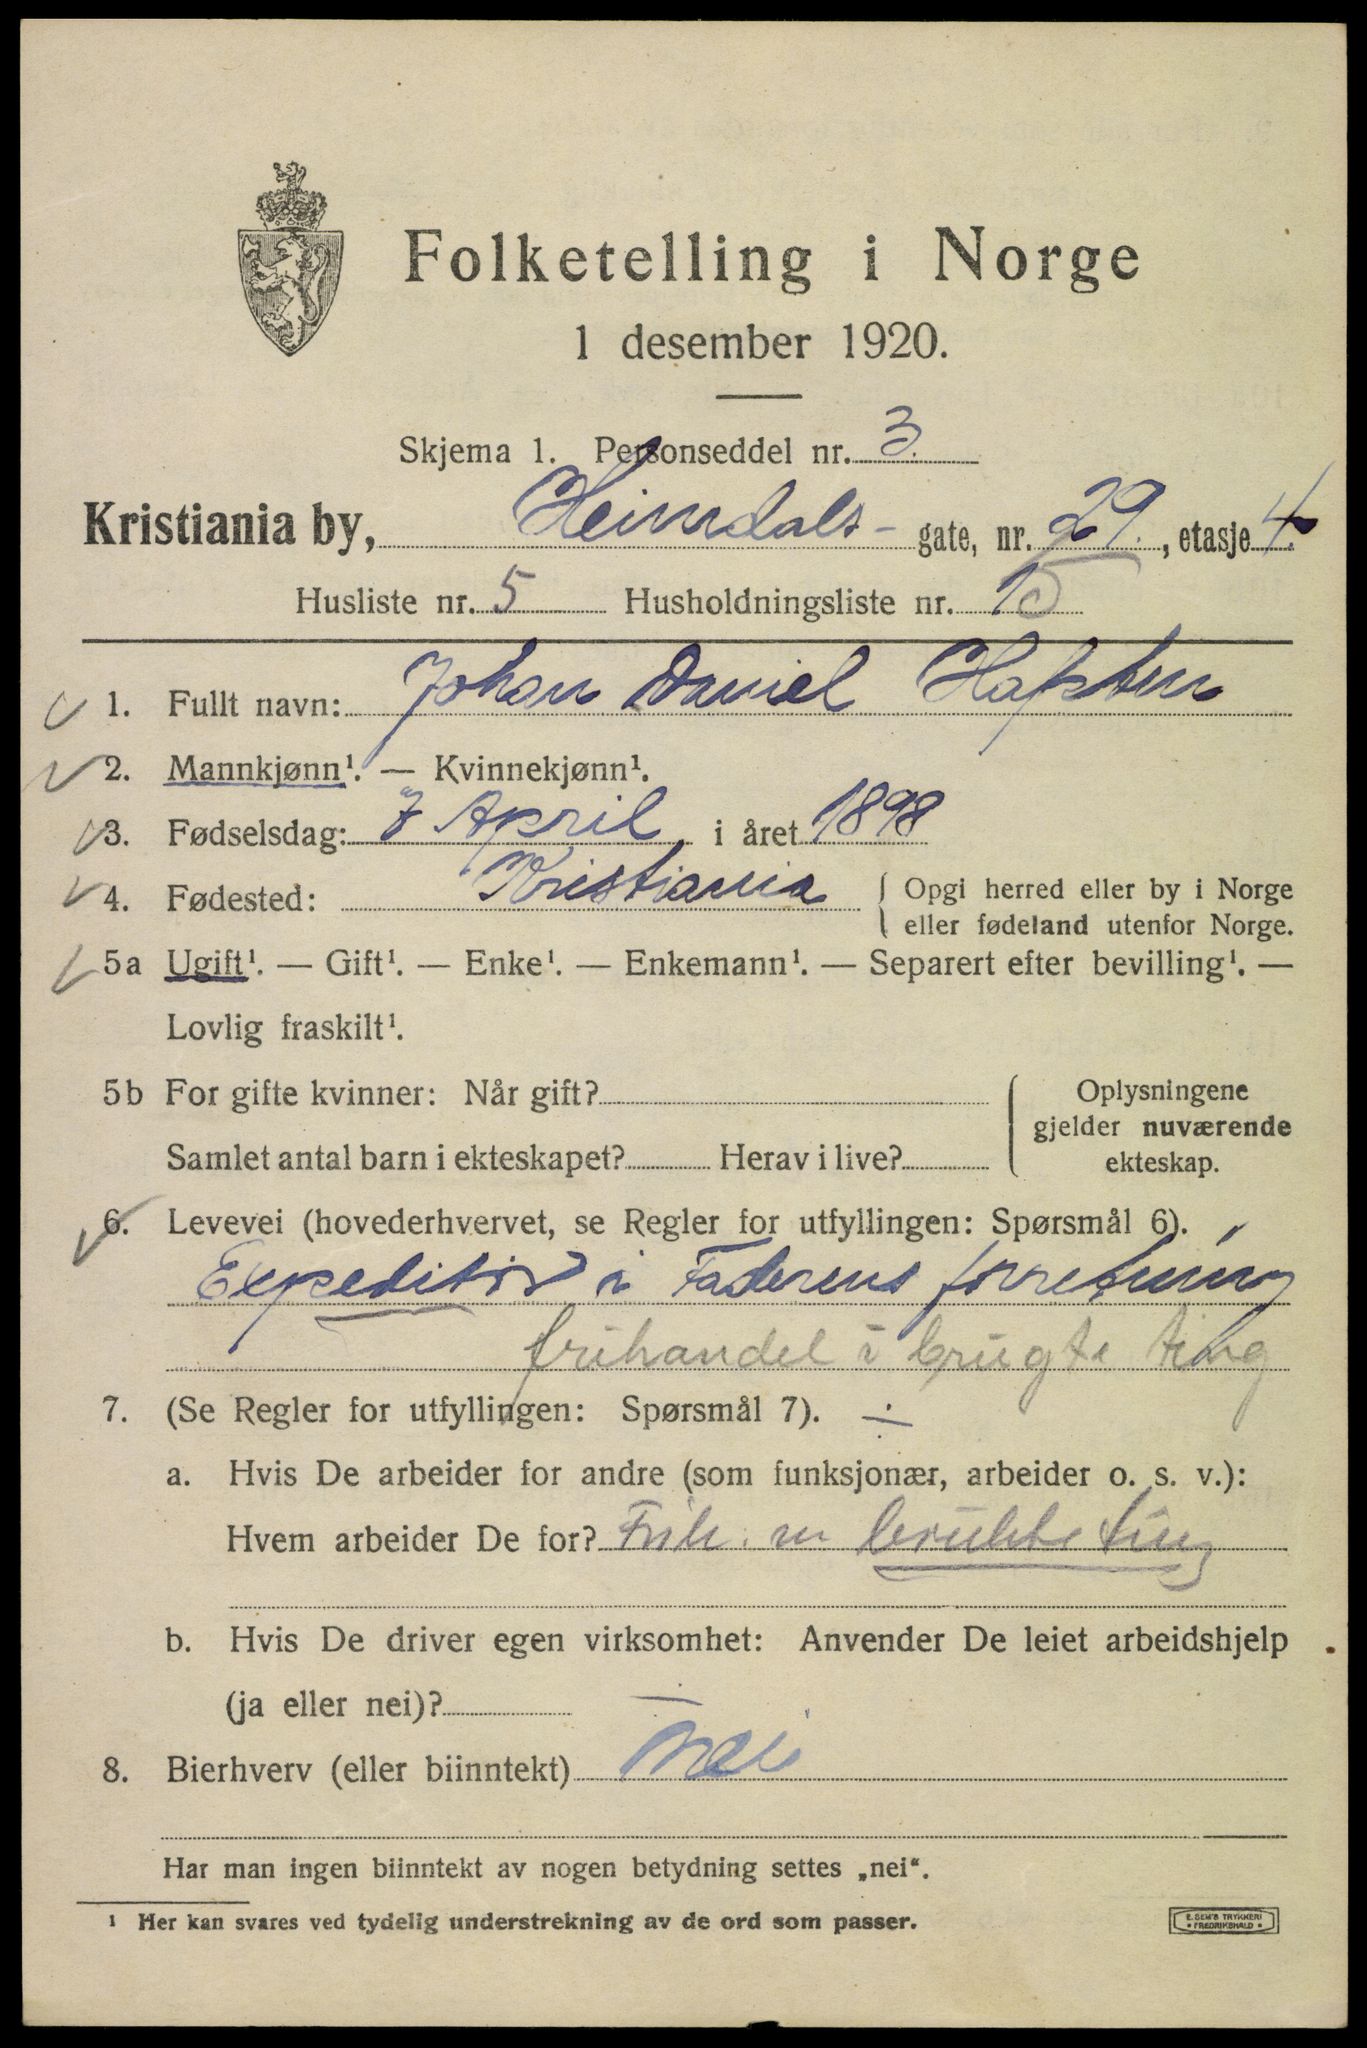 Folketelling i Norge
1 desember 1920.
Skjema 1. Personseddel nr. 3.
Kristiania by, Heimdals- gate, nr. 29., etasje 4.
Husliste nr. 5 Husholdningsliste nr. 15
1. Fullt navn: Johan Daniel Hafsten
2. Mannkjønn¹. — Kvinnekjønn¹.
3. Fødselsdag: 7 April i året 1898
4. Fødested: Kristiania { Opgi herred eller by i Norge
eller fødeland utenfor Norge.
5a Ugift¹. — Gift¹. — Enke¹. — Enkemann¹. — Separert efter bevilling¹. —
Lovlig fraskilt¹.
5b For gifte kvinner: Når gift? { Oplysningene
gjelder nuværende
Samlet antal barn i ekteskapet? Herav i live? ekteskap.
6. Levevei (hovederhvervet, se Regler for utfyllingen: Spørsmål 6).
Expeditør i Faderens forretning
frihandel i brugte ting
7. (Se Regler for utfyllingen: Spørsmål 7). ÷
a. Hvis De arbeider for andre (som funksjonær, arbeider o. s. v.):
Hvem arbeider De for? Frih. m brukte ting
b. Hvis De driver egen virksomhet: Anvender De leiet arbeidshjelp
(ja eller nei)?
8. Bierhverv (eller biinntekt) nei
Har man ingen biinntekt av nogen betydning settes „nei“.
¹ Her kan svares ved tydelig understrekning av de ord som passer.
E. SEM'S TRYKKERI
• FREDRIKSHALD •